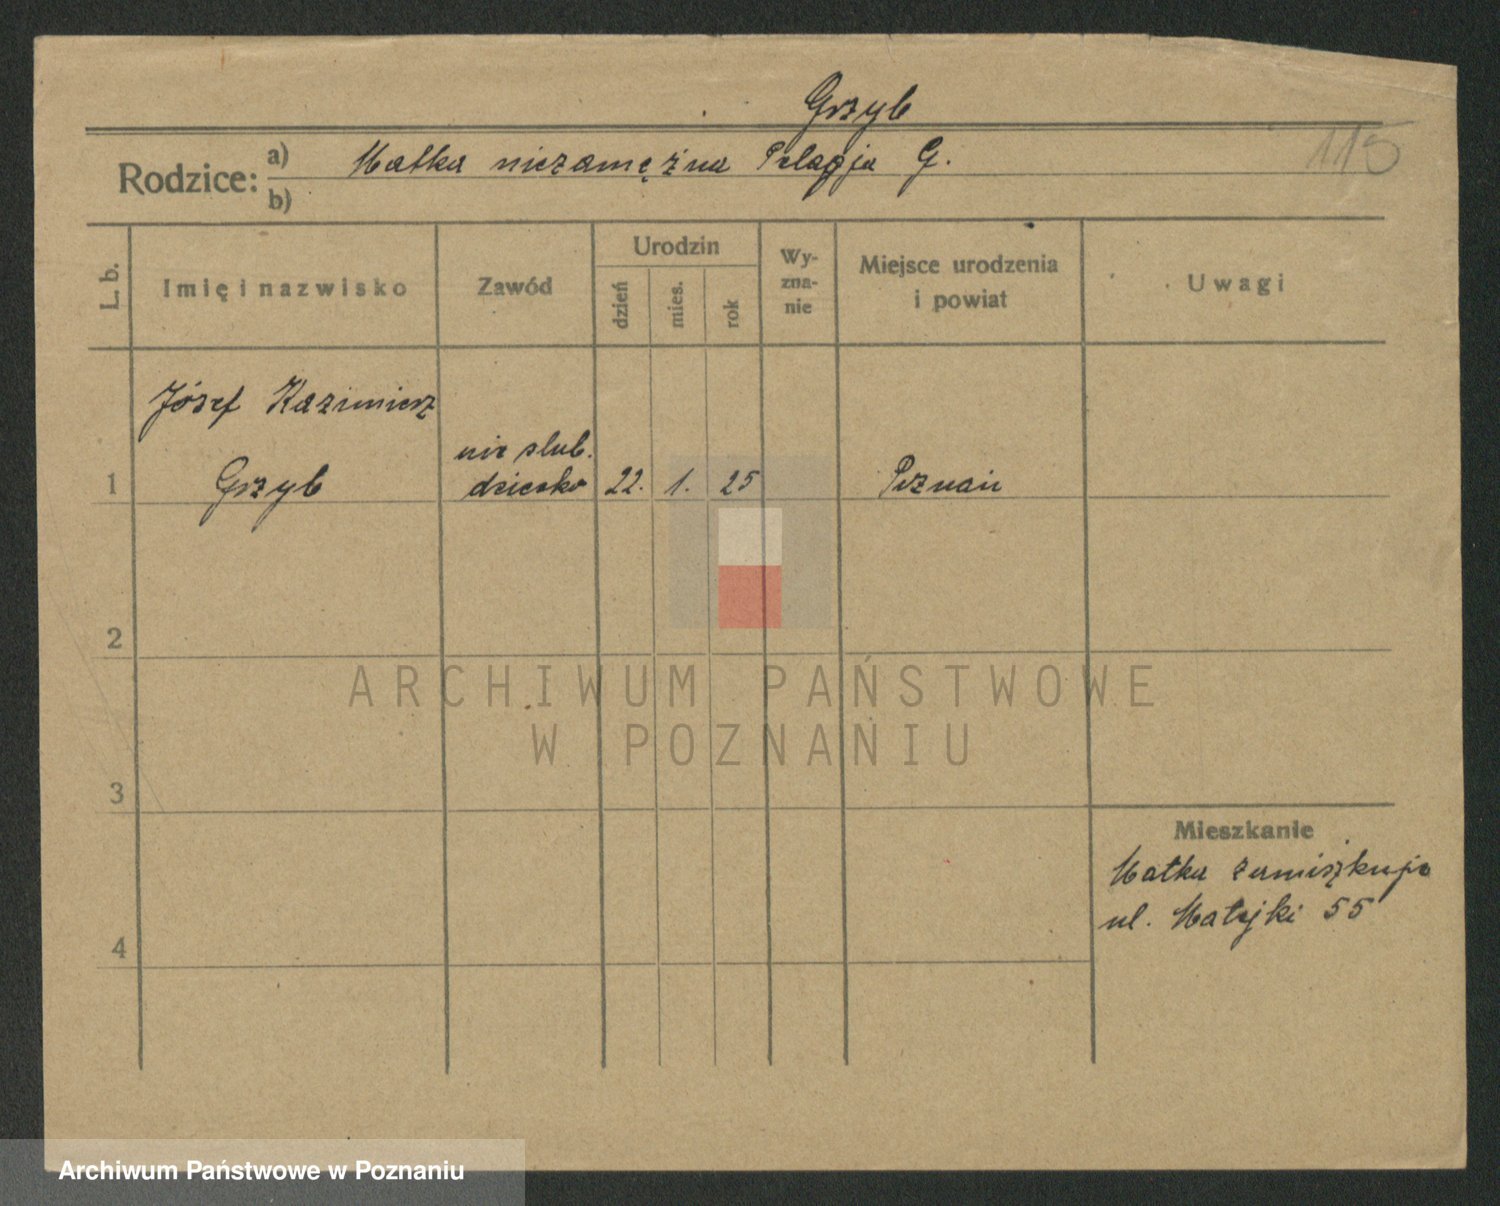 Grzyb
115
Rodzice: a) Matka niezamężna Pelagja G.
b)
L. b.
Imię i nazwisko
Zawód
Urodzin
dzień
mies.
rok
Wy-
zna-
nie
Miejsce urodzenia
i powiat
Uwagi
Józef Kazimierz
nie slub.
1 Grzyb dziecko 22. 1. 25 Poznań
2
ARCHIWUM PAŃSTWOWE
W POZNANIU
3
Mieszkanie
Matka zamieszkuje
ul. Matejki 55
4
Archiwum Państwowe w Poznaniu